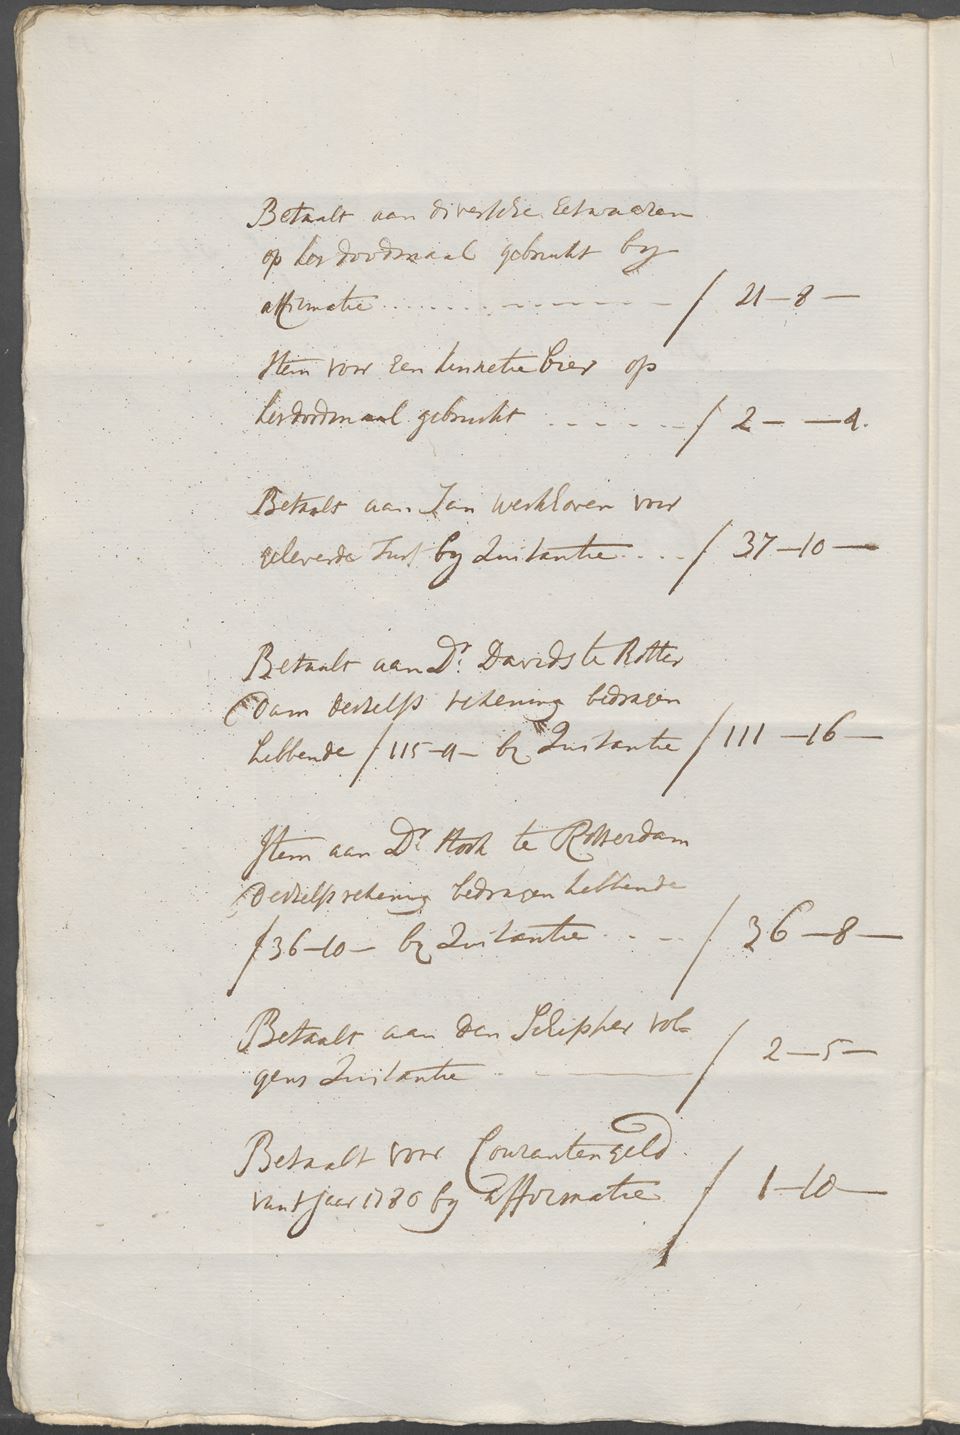 Betaalt aan diversche Eetwaaren
op het doodmaal gebruikt by
affirmatie . . . . . . . - - - - - - - ƒ 21 - 8 -
Item voor Een kinnetie bier op
het doodmaal gebruikt . - - - - - ƒ 2 - - 4.
Betaalt aan Jan werkhoven voor
geleverde Turf by Quitantie . . . ƒ 37 - 10 -
Betaalt aan Dr. Davids te Rotter
dam deszelfs rekening bedragen
hebbende ƒ 115 - 9 - by Quitantie ƒ 111 - 16 -
Item aan Dr te Rotterdam
deszelfs rekening bedragen hebbende
ƒ 36 - 10 - by Quitantie . - - ƒ 36 - 8 -
Betaalt aan den Schipper vol=
gens Quitantie - ƒ 2 - 5 -
Betaalt voor Couranten geld
van t jaar 1780 by affirmatie ƒ 1 - 10 -